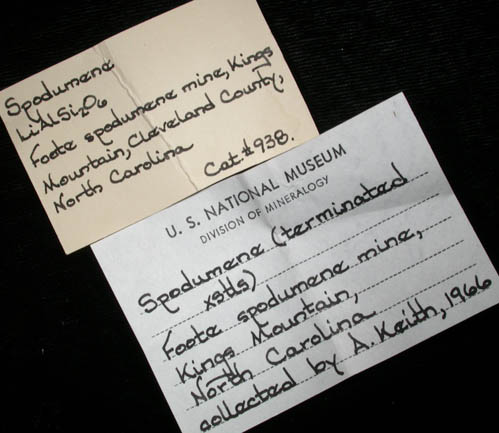 Spodumene
LiAlSi2O6
Foote spodumene mine, Kings
Mountain, Cleveland County,
North Carolina
Cat. #938.
U. S. NATIONAL MUSEUM
DIVISION OF MINERALOGY
Spodumene (terminated
xstls)
Foote spodumene mine,
Kings Mountain,
North Carolina
collected by A. Keith, 1966